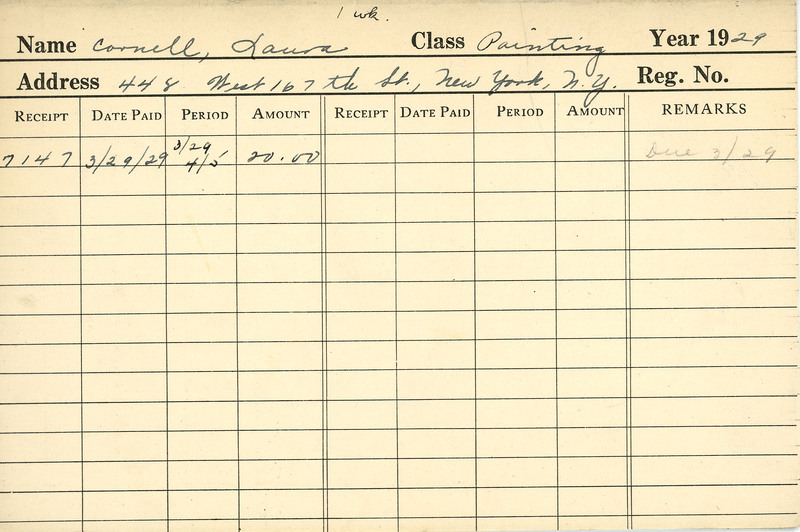 1 wk.
Name Cornell, Laura Class Painting Year 1929
Address 448 West 167th St., New York, N.Y. Reg. No.
RECEIPT DATE PAID PERIOD AMOUNT RECEIPT DATE PAID PERIOD AMOUNT REMARKS
7147 3/29/29 3/29 4/5 20.00 Due 3/29